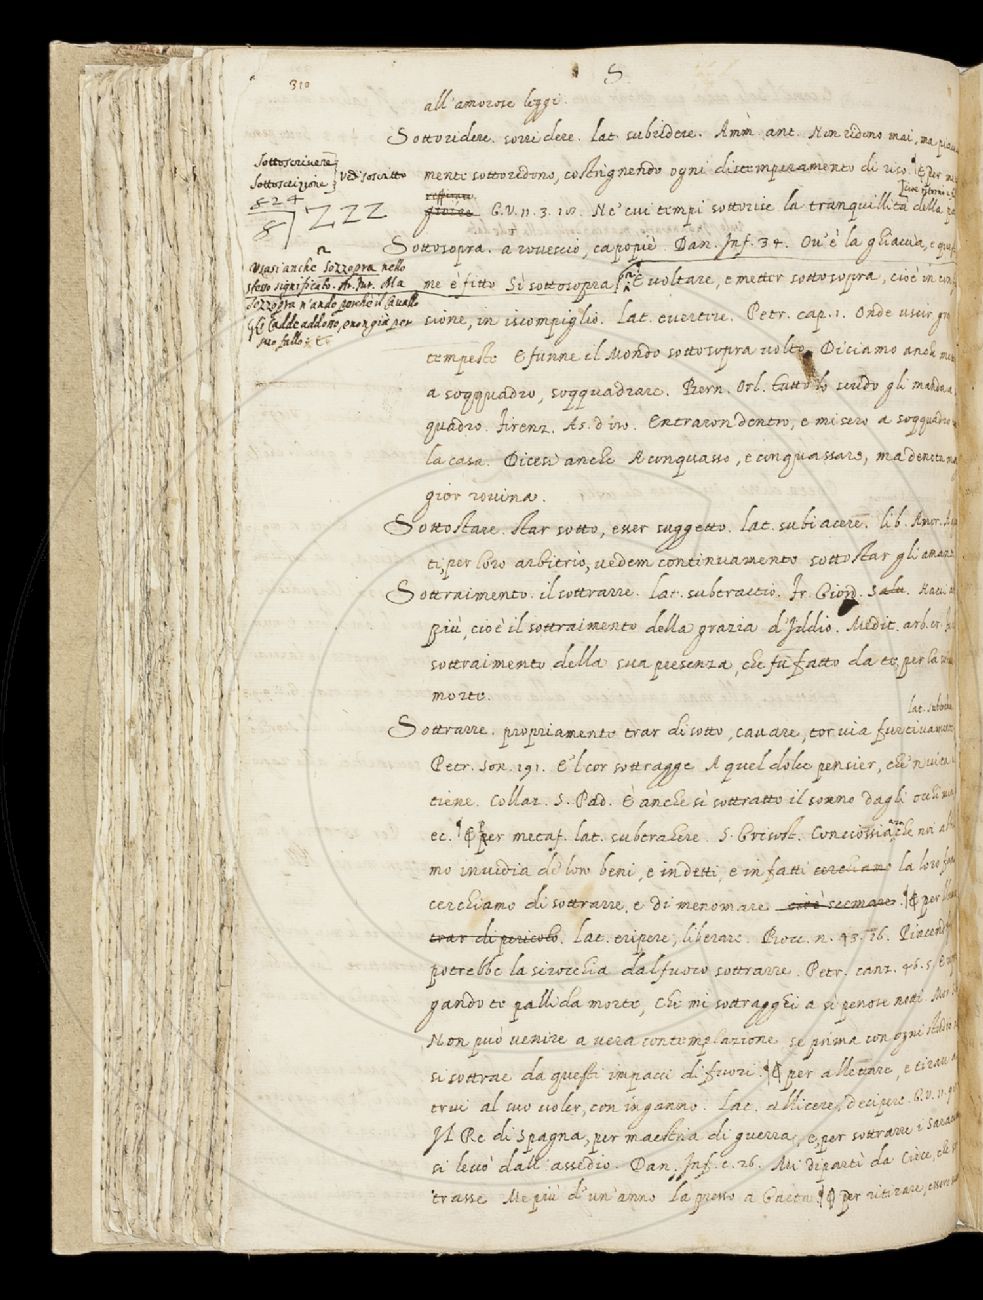 310
S
all'amorose leggi.
Sottoridere. sorridere. lat. subridere. Amm. ant. Non ridono mai, ma
Sottoscrivere
Sottoscrizione
Vedi soscritto
mente sottoridono, costrignendo ogni distemperamento di riso. E per
824
8 ZZZ
G.V. 11. 3. Ne' cui tempi sottorise la tranquillità della
Sottosopra. a rovescio, capopiè. Dan. Inf. 34. Ov'è la ghiaccia, e
Usasi anche Sozzopra nello
stesso significato.
Sozzopra n'andò perchè il Cavallo
gli cadde addosso, e non già per
suo fallo.
me è fitto Sì sottosopra E voltare, e metter sottosopra, cioè in
sione, in iscompiglio. Lat. evertere. Petr. cap. 1. Onde uscir
tempeste E funne il Mondo sottosopra volto. Diciamo anche
a soqquadro, soqquadrare. Bern. Orl. tutto lo scudo gli manda a
quadro. Firenz. As. d'oro. Entraron dentro, e misero a soqquadro
la casa. Dicesi anche A conquasso, e conquassare, ma denota
gior rovina.
Sottostare. star sotto, esser suggetto. lat. subiacere. lib. Amor.
ti, per loro arbitrio, vedem continuamente sottostar gli
Sottraimento. il sottrarre. lat. subtractio. Fr. Giord.
più, cioè il sottraimento della grazia d'Iddio. Medit. arb. cr.
sottraimento della sua presenza, che fu fatto da te, per la
morte.
Sottrarre. propriamente trar di sotto, cavare, tor via furtivamente
lat.
Petr. Son. 191. E'l cor sottragge A quel dolce pensier, che'n vita
tiene. Collaz. S. Pad. È anche sì sottratto il sonno dagli occhi
ec. per metaf. lat. subtrahere. S. Grisost. Conciossia che noi
mo invidia de' loro beni, e in detti, e in fatti cerchiamo la loro
cerchiamo di sottrarre, e di menomare cioè scemare. per
trar di pericolo. lat. eripere, liberare. Bocc. n. 43. 16.
potrebbe la sirocchia dal fuoco sottrarre. Petr. canz. 46. 5.
gando te pallida morte, Che mi sottragghi a sì penose notti
Non può venire a vera contemplazione se prima con ogni studio
si sottrae da questi impacci di fuori. per allettare, e tirare
trui al suo voler, con inganno. Lat. allicere, decipere. G.V. 11.
Il Re di Spagna, per maestria di guerra, e per sottrarre i
si levò dall'assedio. Dan. Inf. c. 26. Mi diparti' da Circe, che
trasse Me più d'un'anno la presso a Gaeta. per ritirare,